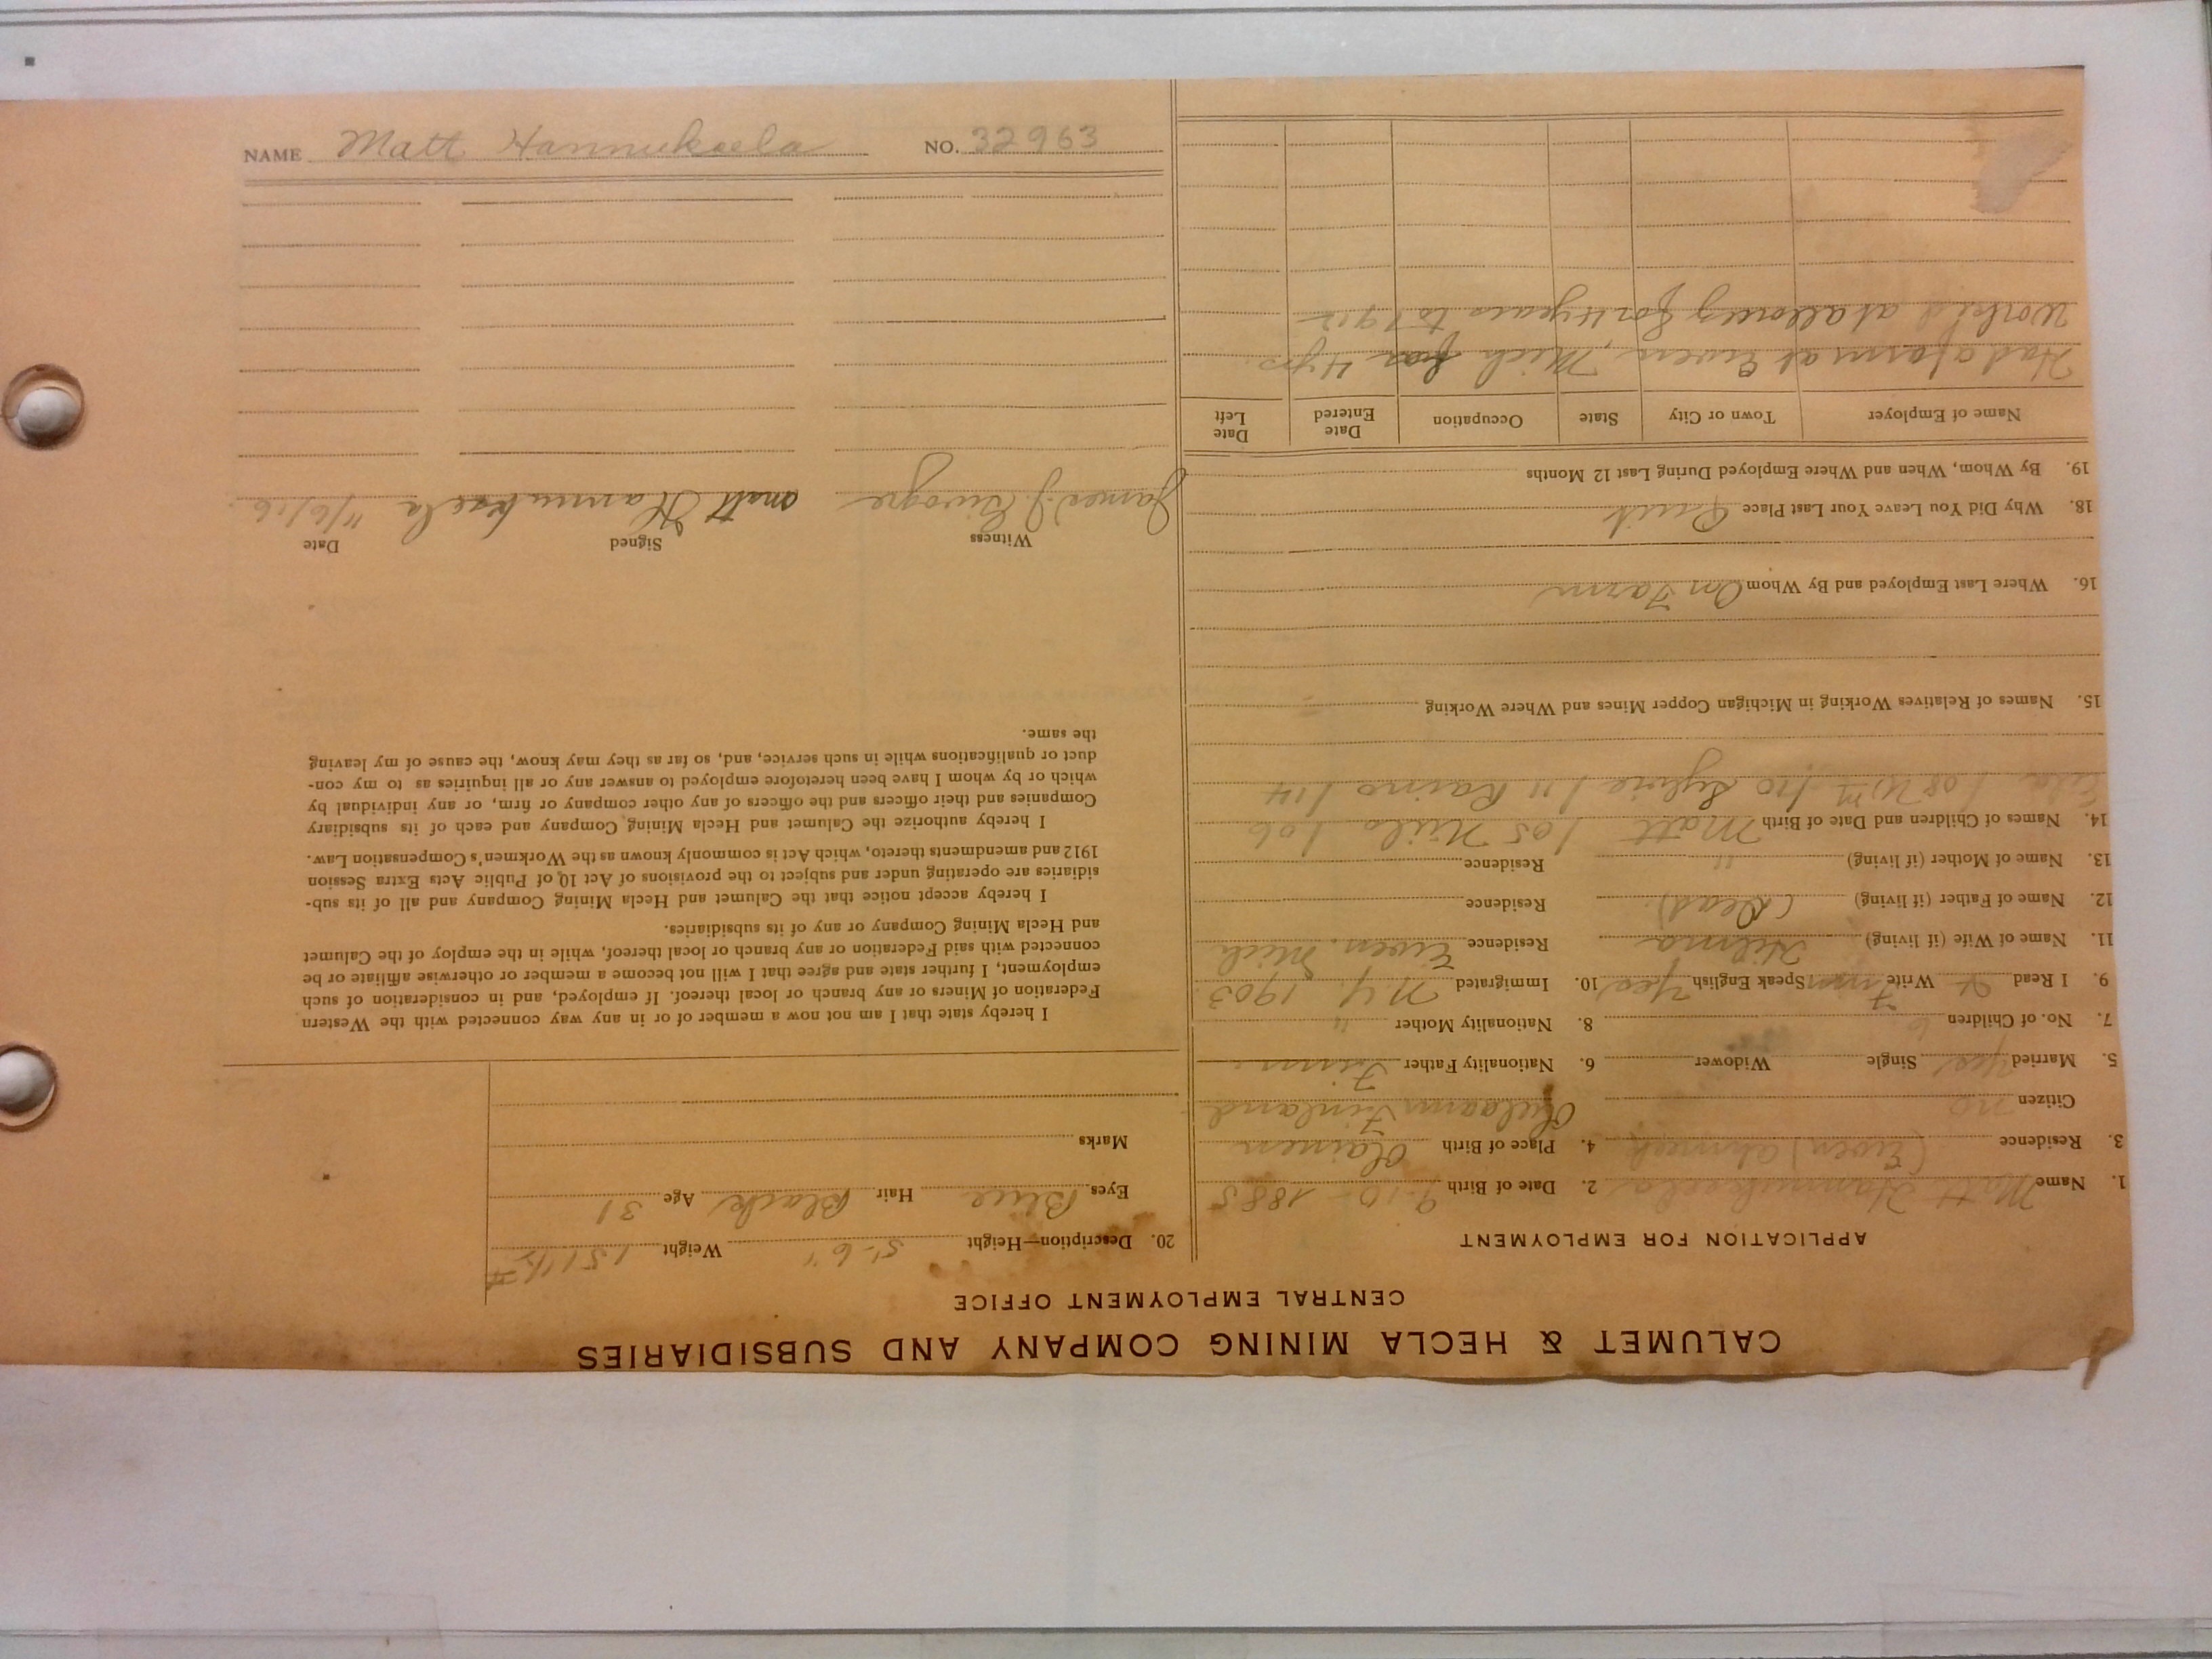 CALUMET & HECLA MINING COMPANY AND SUBSIDIARIES
CENTRAL EMPLOYMENT OFFICE
APPLICATION FOR EMPLOYMENT
1. Name Matt Hannukaela 2. Date of Birth 9-10-1885
3. Residence (Ewen) Ahmeek 4. Place of Birth
Citizen no Finland
5. Married yes Single Widower 6. Nationality Father Finn
7. No. of Children 6 8. Nationality Mother "
9. I Read Write Finn Speak English Yes 10. Immigrated N.Y. 1903
11. Name of Wife (if living) Hilma Residence Ewen. Mich
12. Name of Father (if living) (Dead) Residence
13. Name of Mother (if living) " Residence
14. Names of Children and Date of Birth Matt / 05 Niilo / 06
/ 08 Wm / 10 Sylvia / 11 Raino / 14
15. Names of Relatives Working in Michigan Copper Mines and Where Working
16. Where Last Employed and By Whom On Farm
18. Why Did You Leave Your Last Place Quit
19. By Whom, When and Where Employed During Last 12 Months
Name of Employer Town or City State Occupation Date Entered Date Left
Had a farm at Ewen, Mich for 4 yrs.
Worked at allouez for 4 years to 1912
20. Description—Height 5'-6" Weight 151 1/2 #
Eyes Blue Hair Black Age 31
Marks
I hereby state that I am not now a member of or in any way connected with the Western
Federation of Miners or any branch or local thereof. If employed, and in consideration of such
employment, I further state and agree that I will not become a member or otherwise affiliate or be
connected with said Federation or any branch or local thereof, while in the employ of the Calumet
and Hecla Mining Company or any of its subsidiaries.
I hereby accept notice that the Calumet and Hecla Mining Company and all of its sub-
sidiaries are operating under and subject to the provisions of Act 10, of Public Acts Extra Session
1912 and amendments thereto, which Act is commonly known as the Workmen's Compensation Law.
I hereby authorize the Calumet and Hecla Mining Company and each of its subsidiary
Companies and their officers and the officers of any other company or firm, or any individual by
which or by whom I have been heretofore employed to answer any or all inquiries as to my con-
duct or qualifications while in such service, and, so far as they may know, the cause of my leaving
the same.
Witness Signed Date
James J. matt Hannuksela 11/6/16
NAME Matt Hannukaela NO. 32963